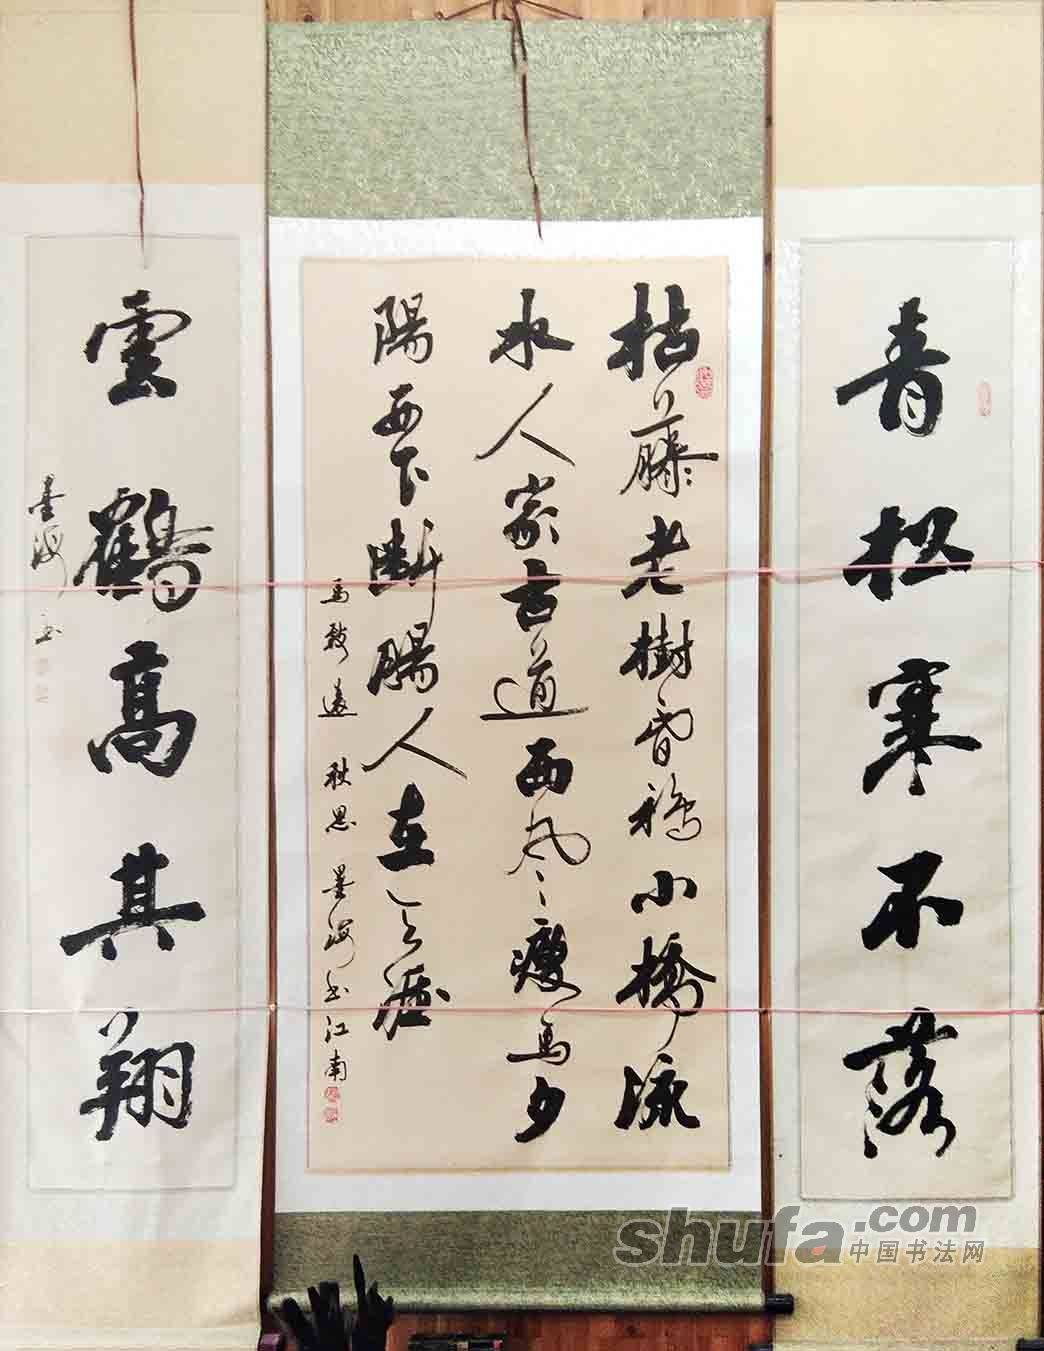 青松寒不落
枯藤老樹昏鴉小橋流
水人家古道西風瘦馬夕
陽西下斷腸人在天涯
馬致遠 秋思 墨海書江南
雲鶴高其翔
墨海書
shufa.com
中国书法网